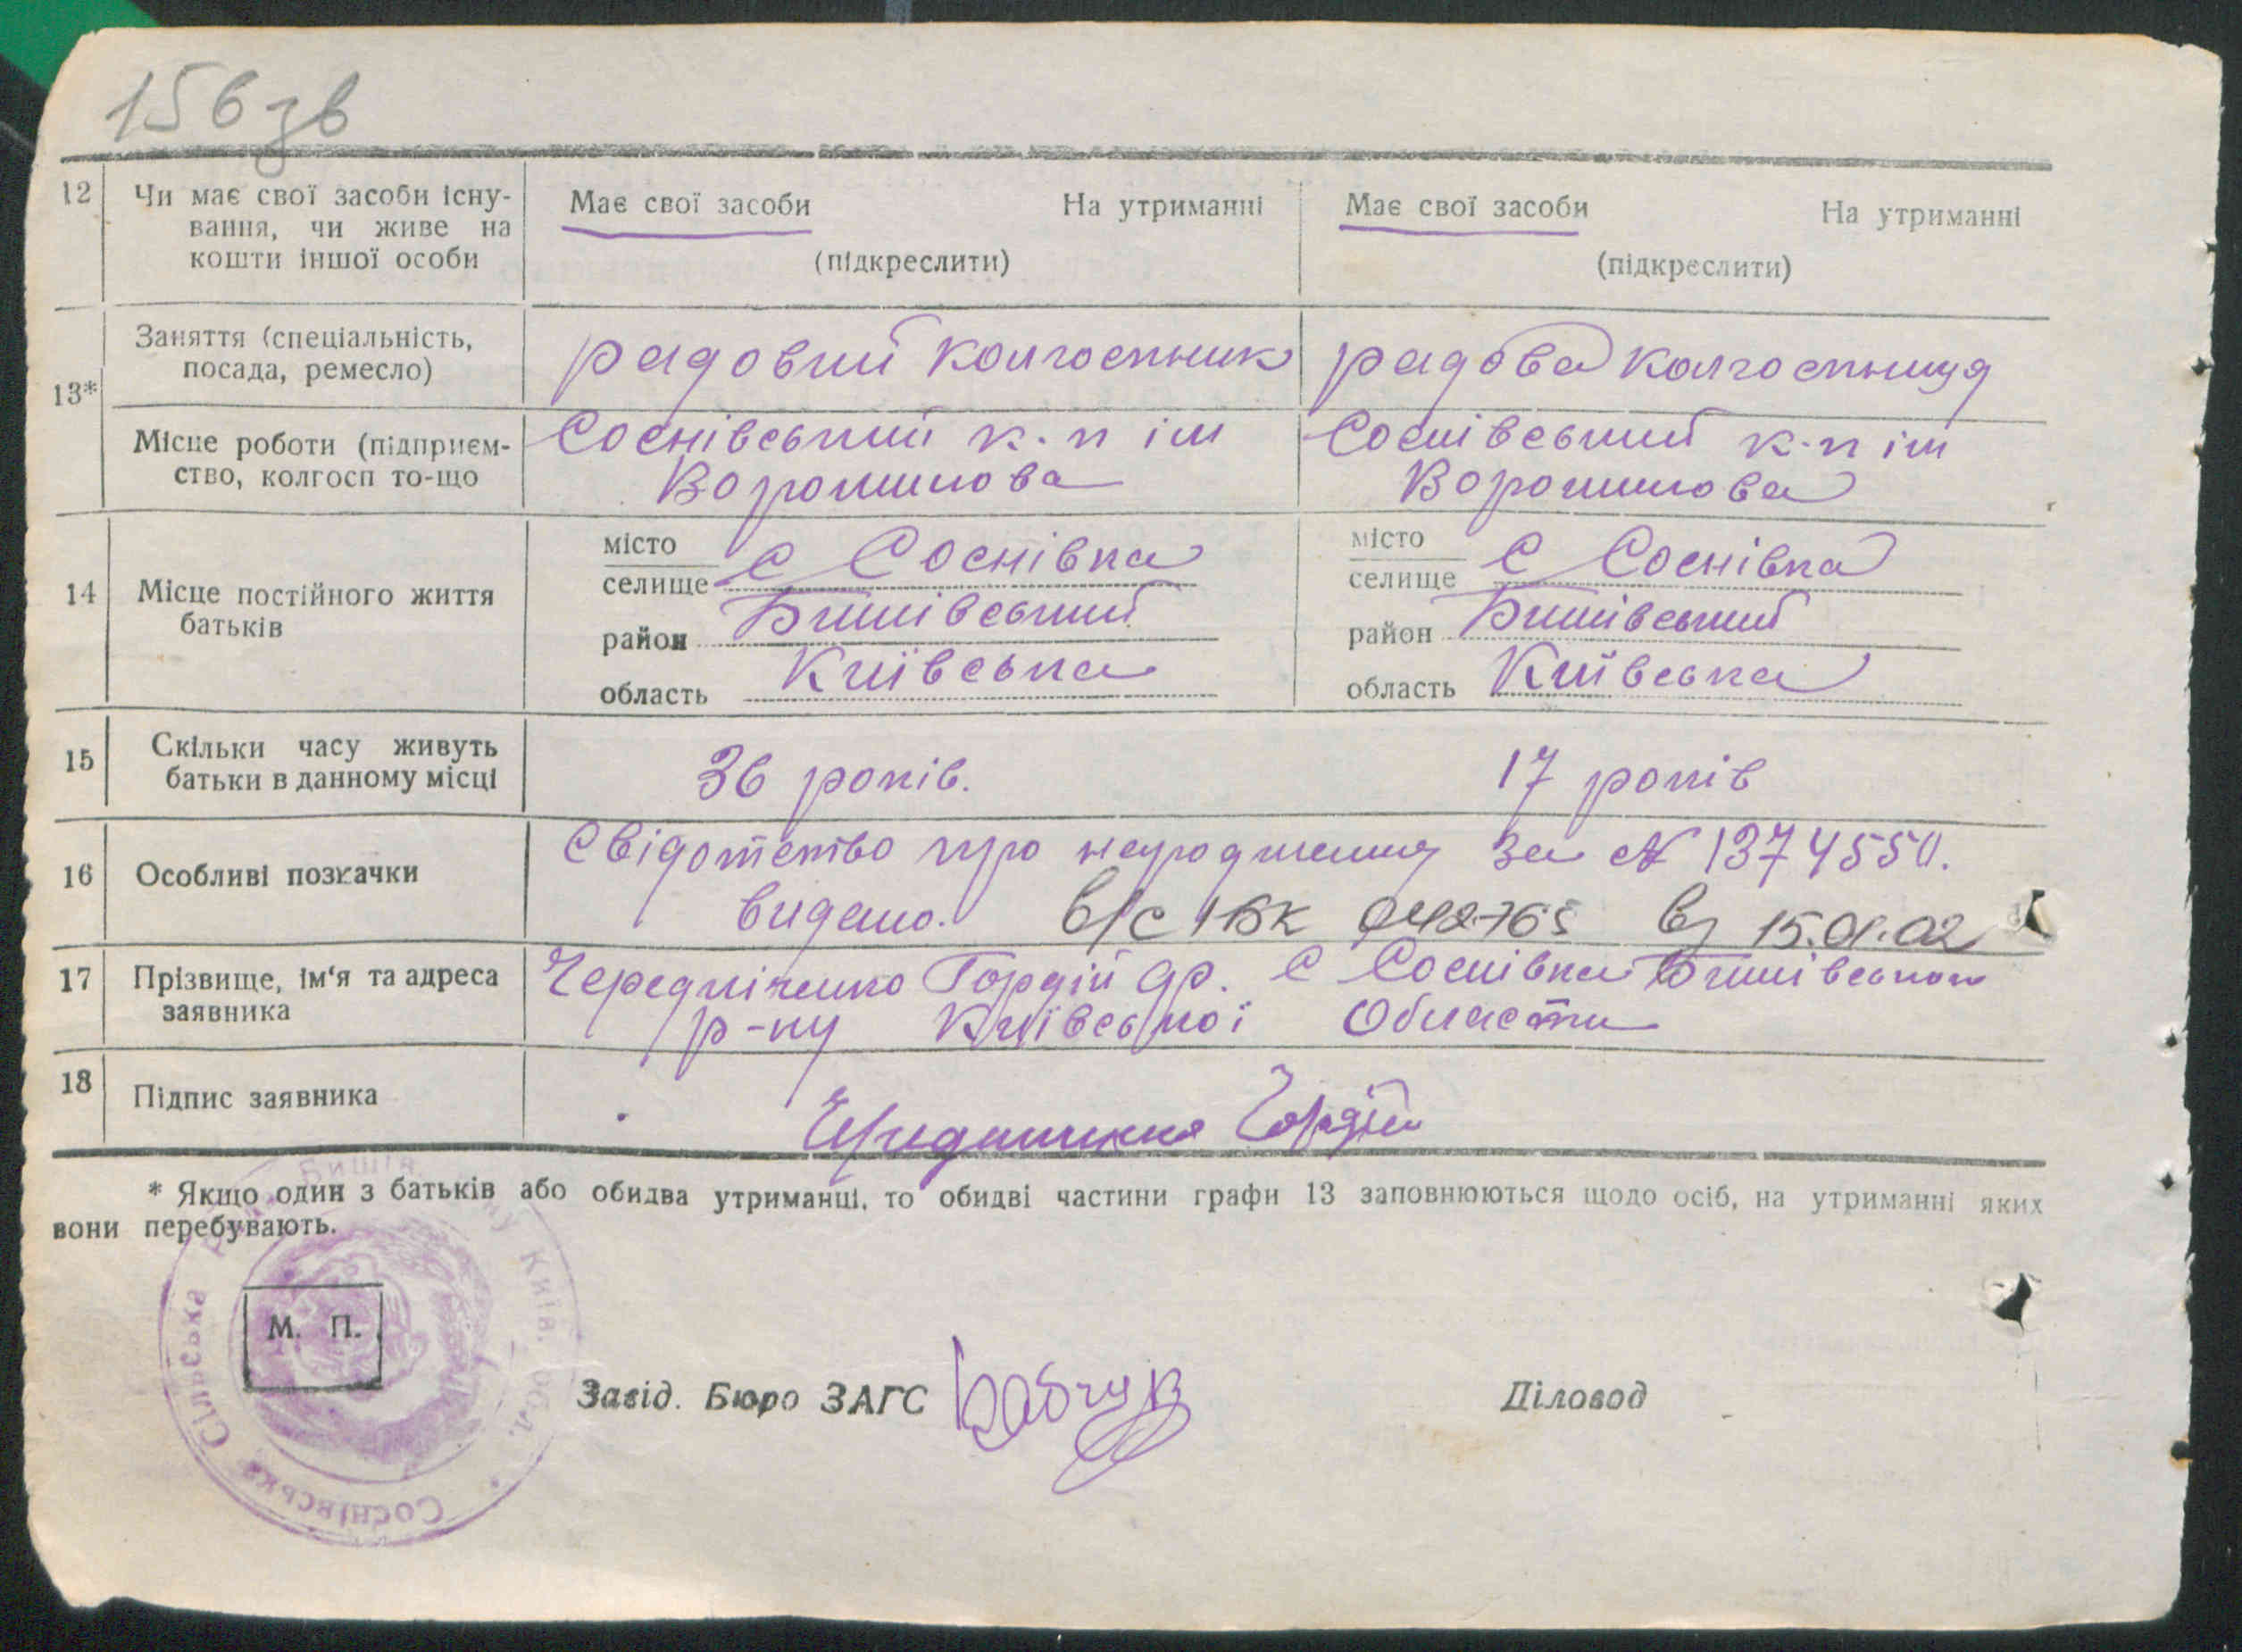 156 зв
12 Чи має свої засоби існу- Має свої засоби На утриманні Має свої засоби На утриманні
вання, чи живе на
кошти іншої особи (підкреслити) (підкреслити)
13* Заняття (спеціальність, радовий колгоспник радова колгоспниця
посада, ремесло)
Місце роботи (підприєм- Соснівський к-п ім Соснівський к-п ім
ство, колгосп то-що Ворошилова Ворошилова
14 Місце постійного життя батьків
місто
селище с Соснівка
район Бишівський
область Київська
місто
селище с Соснівка
район Бишівський
область Київська
15 Скільки часу живуть 36 років. 17 років
батьки в данному місці
16 Особливі позначки Свідотство про народження за № 1374550.
видано. в/с 1БК 042765 від 15.01.02
17 Прізвище, ім‘я та адреса Чередніченко Гордій др. с Соснівка Бишівського
заявника р-ну Київської Области
18 Підпис заявника Гордій
* Якщо один з батьків або обидва утриманці, то обидві частини графи 13 заповнюються щодо осіб, на утриманні яких
вони перебувають.
М. П.
Соснівська Сільська Рада Бишів. р-ну Київ. обл.
Завід. Бюро ЗАГС Діловод